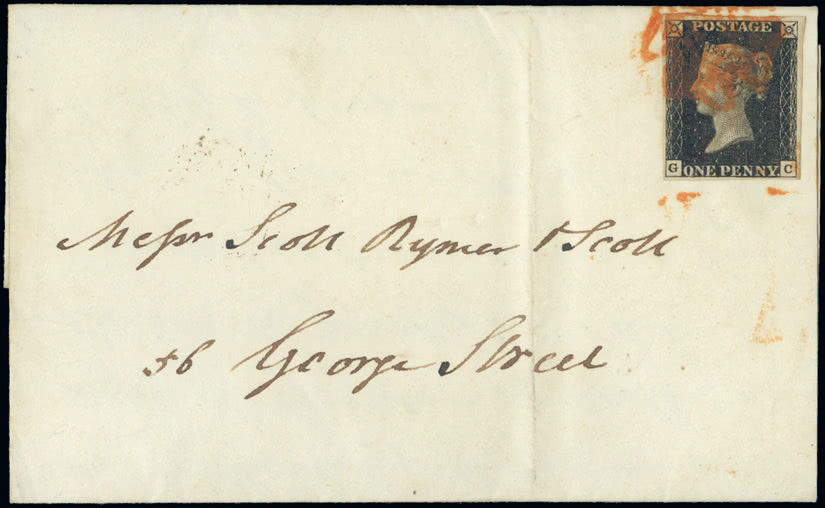 POSTAGE
G C
ONE PENNY
Messr Scott Rymer & Scott
56 George Street